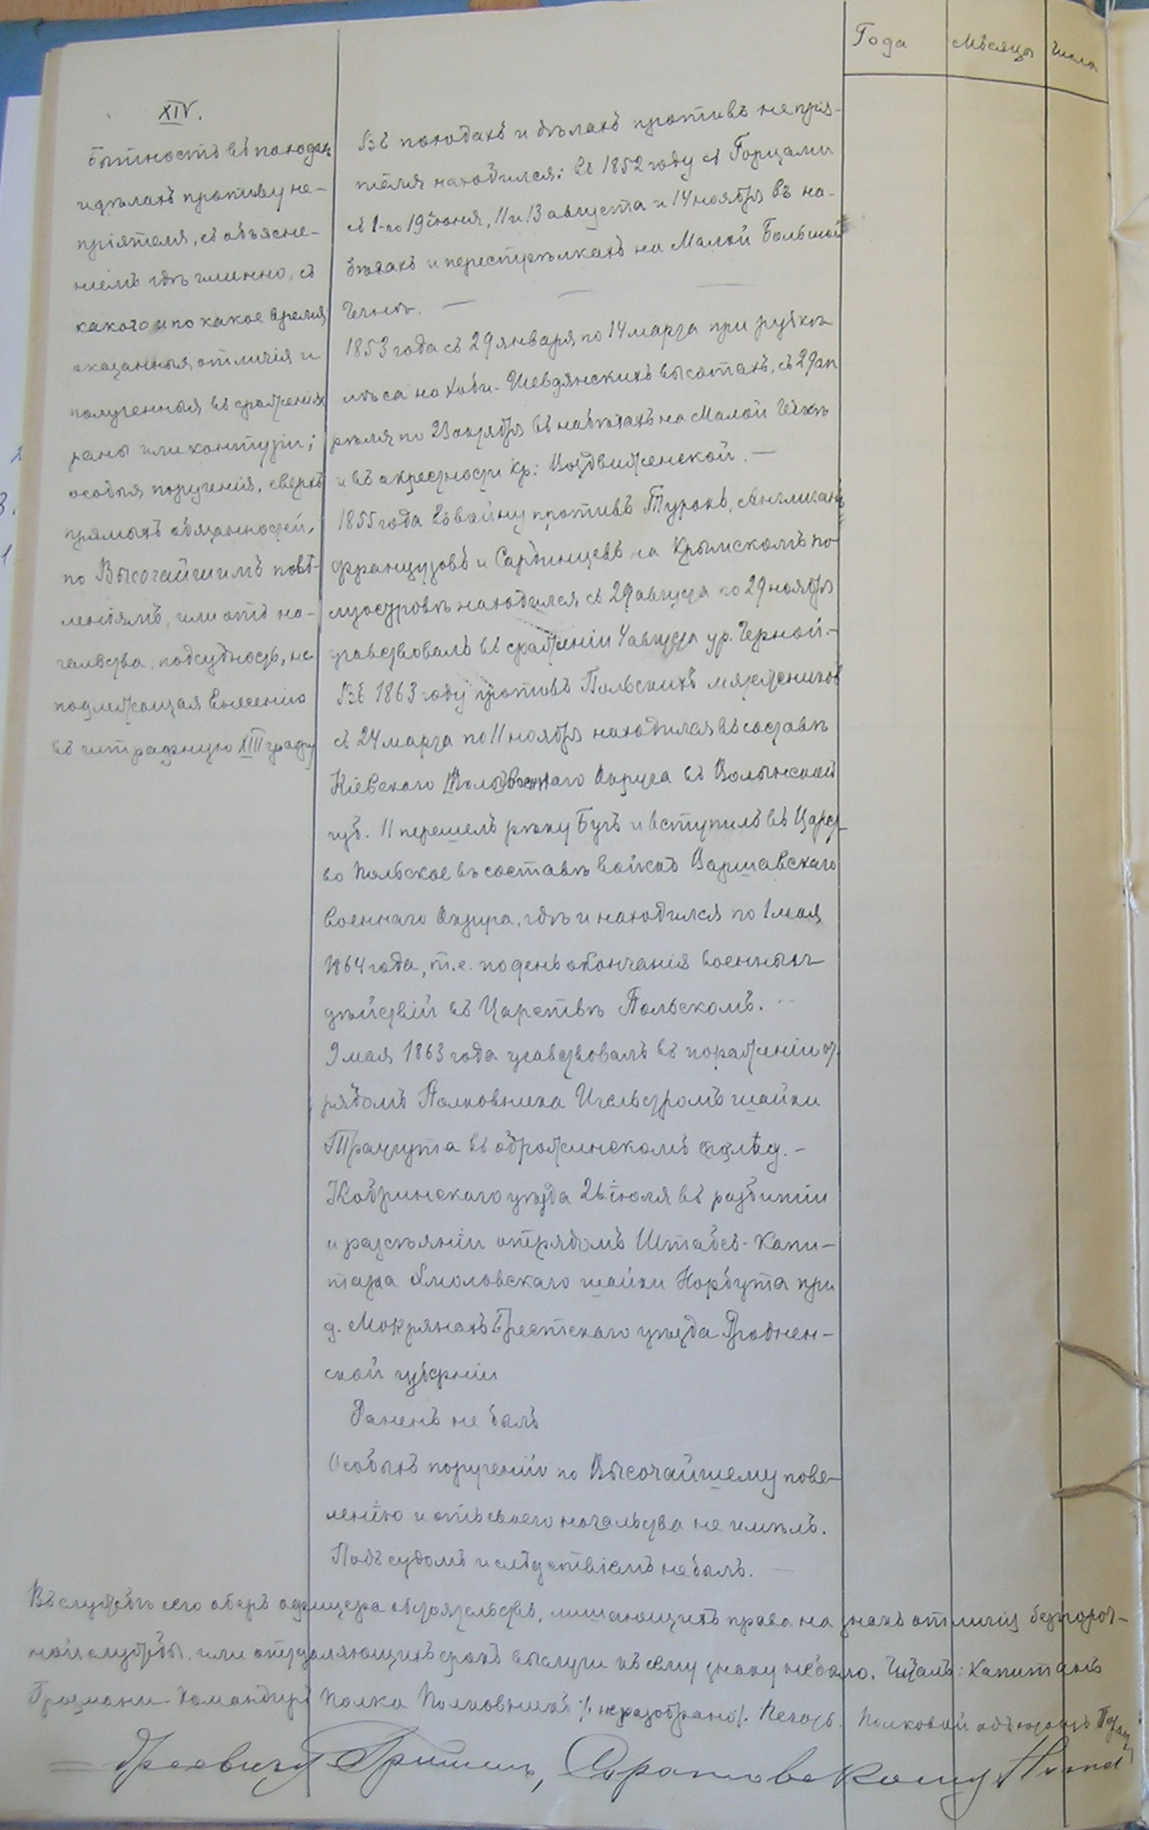 Года Мѣсяцы Числа
XIV.
Бытность въ походахъ
и дѣлахъ противу не-
пріятеля, съ объясне-
ніемъ гдѣ именно, съ
какого и по какое время
оказанныя отличія и
полученныя въ сраженіяхъ
раны или контузіи;
особыя порученія, сверхъ
прямыхъ обязанностей,
по Высочайшимъ повѣ-
леніямъ, или отъ на-
чальства, подсудность, не
подлежащая внесенію
въ штрафную XIII графу
Въ походахъ и дѣлахъ противъ непрія-
теля находился: въ 1852 году съ Горцами
съ 1-го 19 іюня, 11 и 13 августа и 14 ноября въ на-
бѣгахъ и перестрѣлкахъ на Малой Большой
Чечнѣ. —
1853 года съ 29 января по 14 марта при рубкѣ
лѣса на Хоби-Шевдянскихъ высотахъ, съ 29 ап
рѣля по 23 октября въ набѣгахъ на Малой Чечнѣ
и въ окрестности кр: Воздвиженской. —
1855 года въ войну противъ Турокъ, Англичанъ
Французовъ и Сардинцевъ на Крымскомъ по-
луостровѣ находился съ 29 августа по 29 ноября
участвовалъ въ сраженіи 4 августа у р. Черной.—
Въ 1863 году противъ Польскихъ мятежниковъ
съ 24 марта по 11 ноября находился въ составѣ
Кіевскаго Военнаго Округа въ Волынской
губ. 11 перешелъ рѣку Бугъ и вступилъ въ Царст
во Польское въ составѣ войскъ Варшавскаго
военнаго Округа, гдѣ и находился по 1 мая
1864 года, т.е. по день окончанія военныхъ
дѣйствій въ Царствѣ Польскомъ.
9 мая 1863 года участвовалъ въ пораженіи от
рядомъ Полковника Игельстромъ шайки
Траугута въ
Кобринскаго уѣзда 26 іюля въ разбитіи
и разсѣяніи отрядомъ Штабсъ-Капи-
тана шайки Норбута при
д. Мокрянахъ Брестскаго уѣзда Гроднен-
ской губерніи
Раненъ не былъ
Особыхъ порученій по Высочайшему пове-
лѣнію и отъ своего начальства не имѣлъ.
Подъ судомъ и слѣдствіемъ не былъ. —
Въ службѣ сего оберъ офицера обстоятельствъ, лишающихъ права на знакъ отличія безпороч-
ной службы или отдаляющихъ срокъ выслуги къ сему знаку не было. Читалъ: Капитанъ
Командиръ Полка Полковникъ /неразобрано/. Печать. Полковой адъютантъ